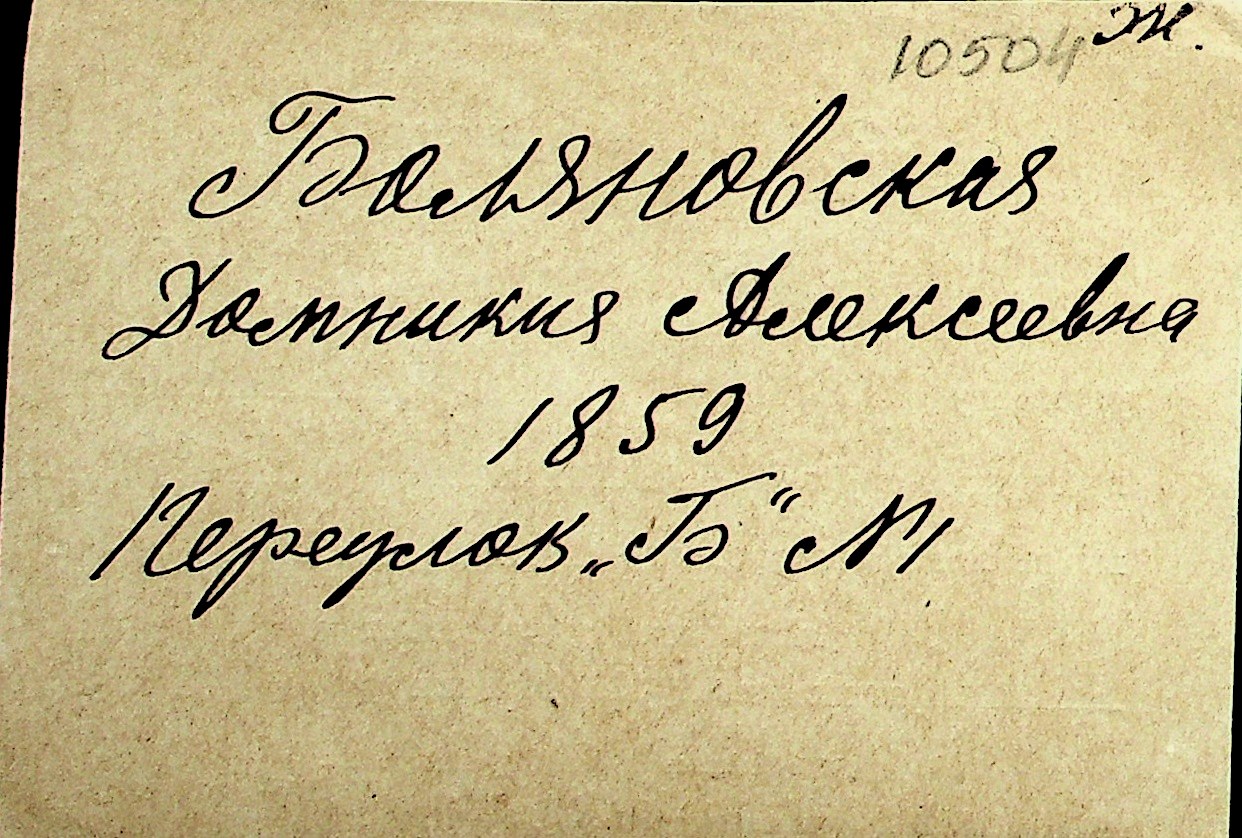 10504 Ж.
Боляновская
Домникия Алексеевна
1859
Переулок „Б“ №1